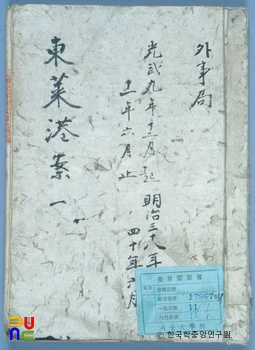 外事局
光武九年十二月起 明治三十八年
十一年六月止 、四十年六月
東萊港案 一
奎章閣圖書
17867
11
ⓒ한국학중앙연구원